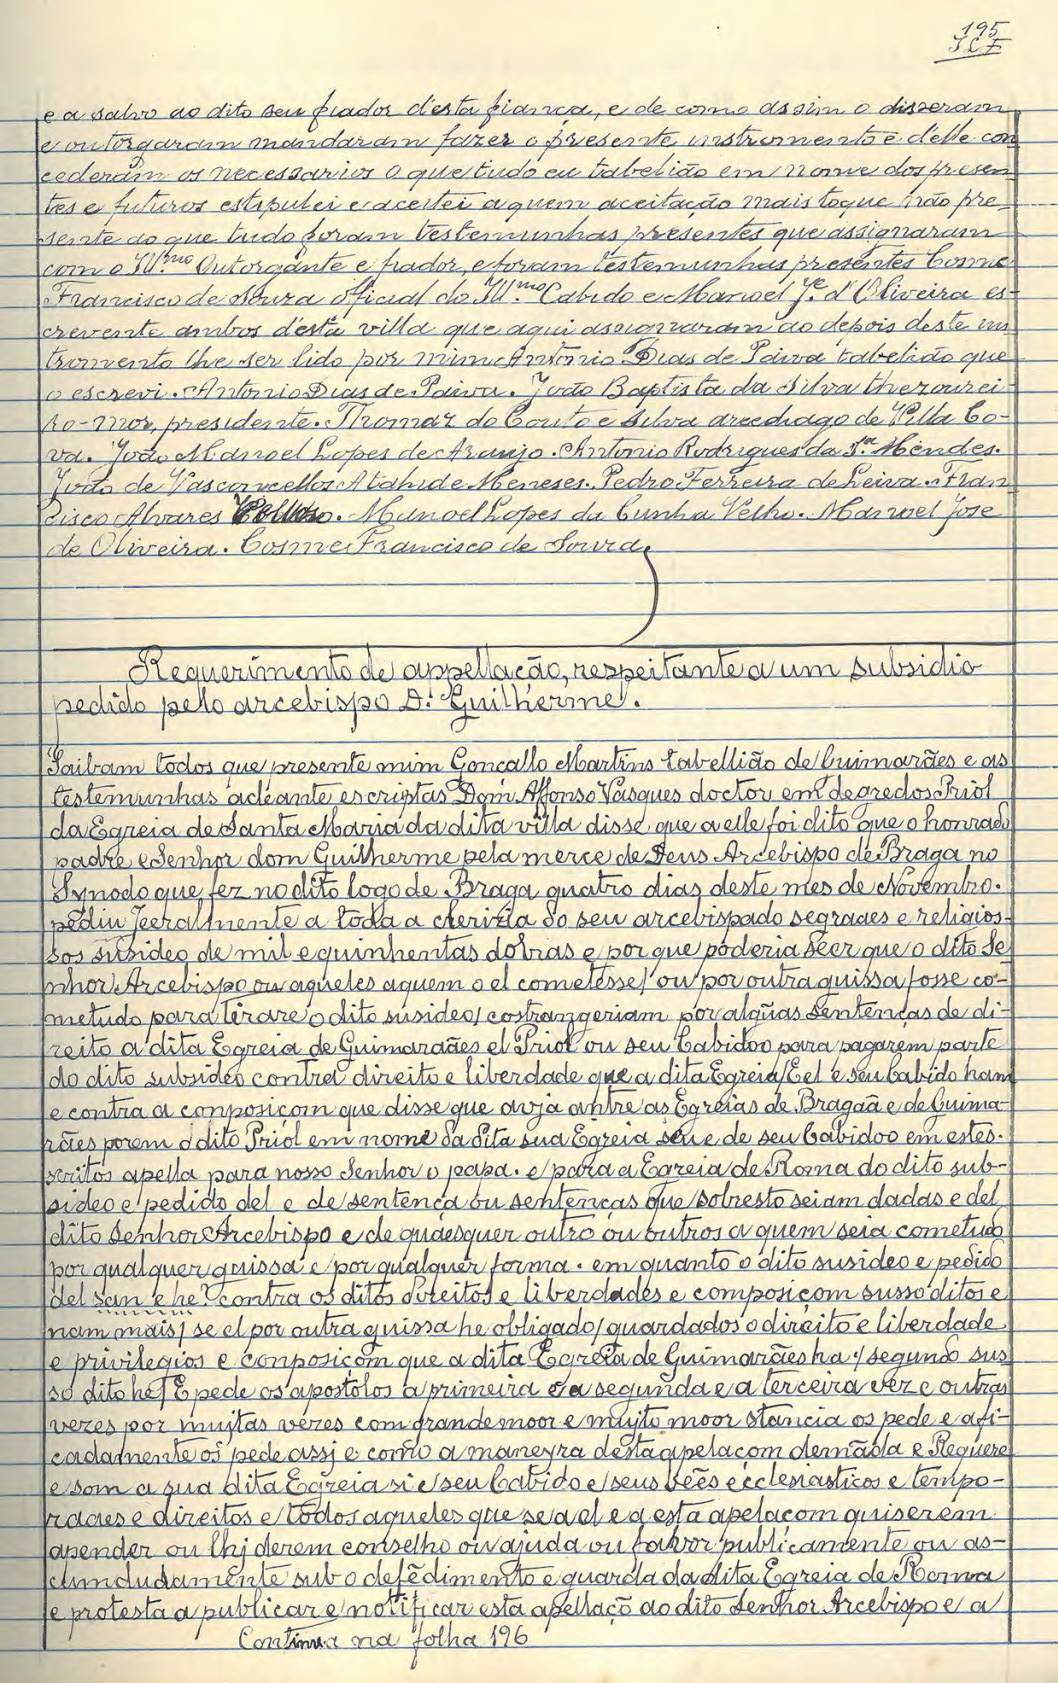 195
e a salvo ao dito seu fiador d'esta fiança, e de como assim o disseram
e outorgaram mandaram fazer o presente instromento e d'elle con
cederam os necessarios o que tudo eu tabelião em nome dos presen
tes e futuros estipulei e aceitei a quem aceitação mais toque não pre-
sente ao que tudo foram testemunhas presentes que assignaram
com o Ill.mo Outorgante e fiador, e foram testemunhas presentes Cosme
Francisco de Souza oficial do Ill.mo Cabido e Manoel J.e d'Oliveira es-
crevente ambos d'esta villa que aqui assignaram ao depois deste ins
tromento lhe ser lido por mim Antonio Dias de Paiva tabelião que
o escrevi. Antonio Dias de Paiva. João Baptista da Silva thezourei-
ro-mor, presidente. Thomaz do Couto e Silva arcediago de Villa Co-
va. João Manoel Lopes de Araujo. Antonio Rodrigues da S.a Mendes.
João de Vasconcellos Atahide Meneses. Pedro Ferreira de Leiva. Fran
cisco Alvares. Manoel Lopes da Cunha Velho. Manoel Jose
de Oliveira. Cosme Francisco de Souza.
Requerimento de appellação, respeitante a um subsidio
pedido pelo arcebispo D. Guilherme.
Saibam todos que presente mim Gonçallo Martins tabellião de Guimarães e as
testemunhas adeante escriptas Dom Affonso Vasques doctor em degredos Priol
da Egreia de Santa Maria da dita villa disse que a elle foi dito que o honrado
padre e Senhor dom Guilherme pela merce de Deus Arcebispo de Braga no
Synodo que fez no dito logo de Braga quatro dias deste mes de Novembro.
pediu Jeeralmente a toda a cherizia do seu arcebispado segraaes e religios-
sos susideo de mil e quinhentas dobras e por que poderia seer que o dito Se
nhor Arcebispo ou aqueles aquem o el cometesse/ ou por outra guissa fosse co-
metudo para tirare o dito susideo/ costrangeriam por algũas sentenças de di-
reito a dita Egreia de Guimaraães el Priol ou seu Cabidoo para pagarem parte
do dito subsideo contra direito e liberdade que a dita Egreia/ E el e seu Cabido ham
e contra a conposiçom que disse que avja antre as Egreias de Bragaã e de Guima-
rães porem o dito Priol em nome da dita sua Egreia seu e de seu Cabidoo em estes.
scritos apella para nosso Senhor o papa. e/ para a Egreia de Roma do dito sub-
sideo e/ pedido del e de/ sentença ou sentenças que/ sobresto seiam dadas e del
dito Senhor Arcebispo e de quaesquer outro ou outros a quem seia cometudo
por qualquer guissa e/ por qualquer forma. em quanto o dito susideo e pedido
del san e he? contra os ditos direitos e liberdades e composiçom susso ditos e
nam mais/ se el por outra guissa he obligado/ guardados o direito e liberdade
e privilegios e conposiçom que a dita Egreia de Guimarães ha./ segundo sus
so dito he/ E pede os apostolos a primeira e a segunda e a terceira vez e outras
vezes por mujtas vezes com grande moor e mujto moor stancia os pede e afi-
cadamente os pede assj e como a maneyra desta apelaçom demãda e Requere
e som a sua dita Egreia si e/ seu Cabido e/ seus beẽs ecclesiasticos e tempo-
raaes e direitos e/ todos aqueles que se a el e a esta apelaçom quiserem
apender ou lhj derem conselho ou ajuda ou favor publicamente ou as-
cundudamente sub o defẽdimento e guarda da dita Egreia de Roma
e protesta a publicar e/ notificar esta apellaçõ ao dito Senhor Arcebispo e a
Continua na folha 196